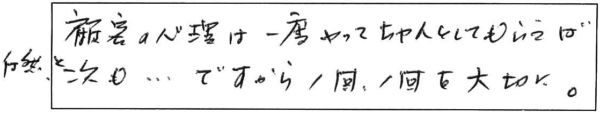 顧客の心理は一度やってちゃんとしてもらえば
自然と次も…ですから1回、1回を大切に。